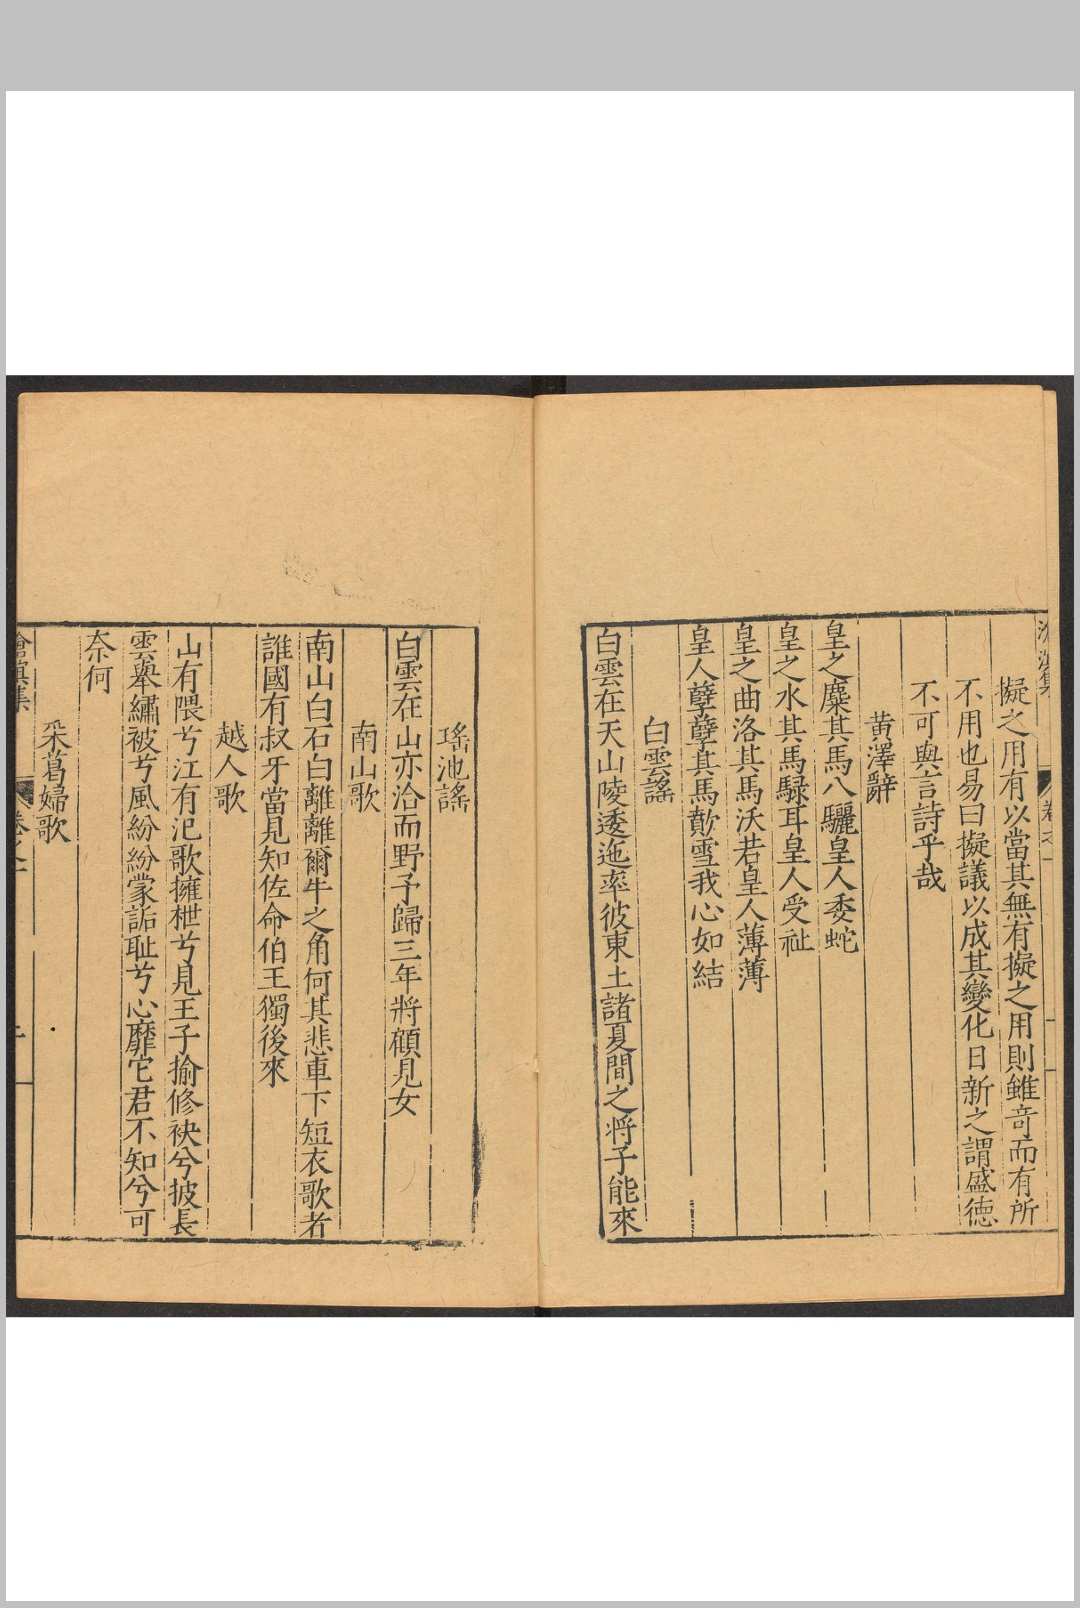 擬之用有以當其無有擬之用則雖奇而有所
不用也易曰擬議以成其變化日新之謂盛德
不可與言詩乎哉
黃澤辭
皇之麋其馬八驪皇人委蛇
皇之水其馬騄耳皇人受祉
皇之曲洛其馬沃若皇人薄薄
皇人孽孽其馬歕雪我心如結
白雲謠
白雲在天山陵逶迤率彼東土諸夏間之将子能來
瑤池謠
白雲在山亦洽而野予歸三年將顧見女
南山歌
南山白石白離離爾牛之角何其悲車下短衣歌者
誰國有叔牙當見知佐命伯王獨後來
越人歌
山有隈兮江有汜歌擁枻兮見王子揄修袂兮披長
雲舉繡被兮風紛紛蒙詬恥兮心靡它君不知兮可
奈何
采葛婦歌